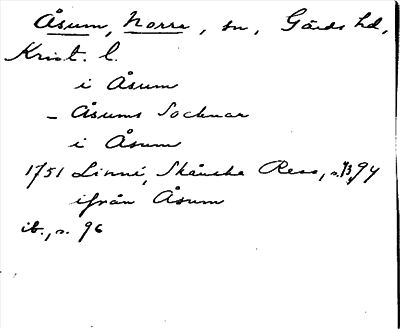 Åsum, Norra, sn, Gärds hd,
Krist. l.
i Åsum
– Åsums Socknar
i Åsum
1751 Linné, Skånska Resa, s. 93, 94
ifrån Åsum
ib., s. 96